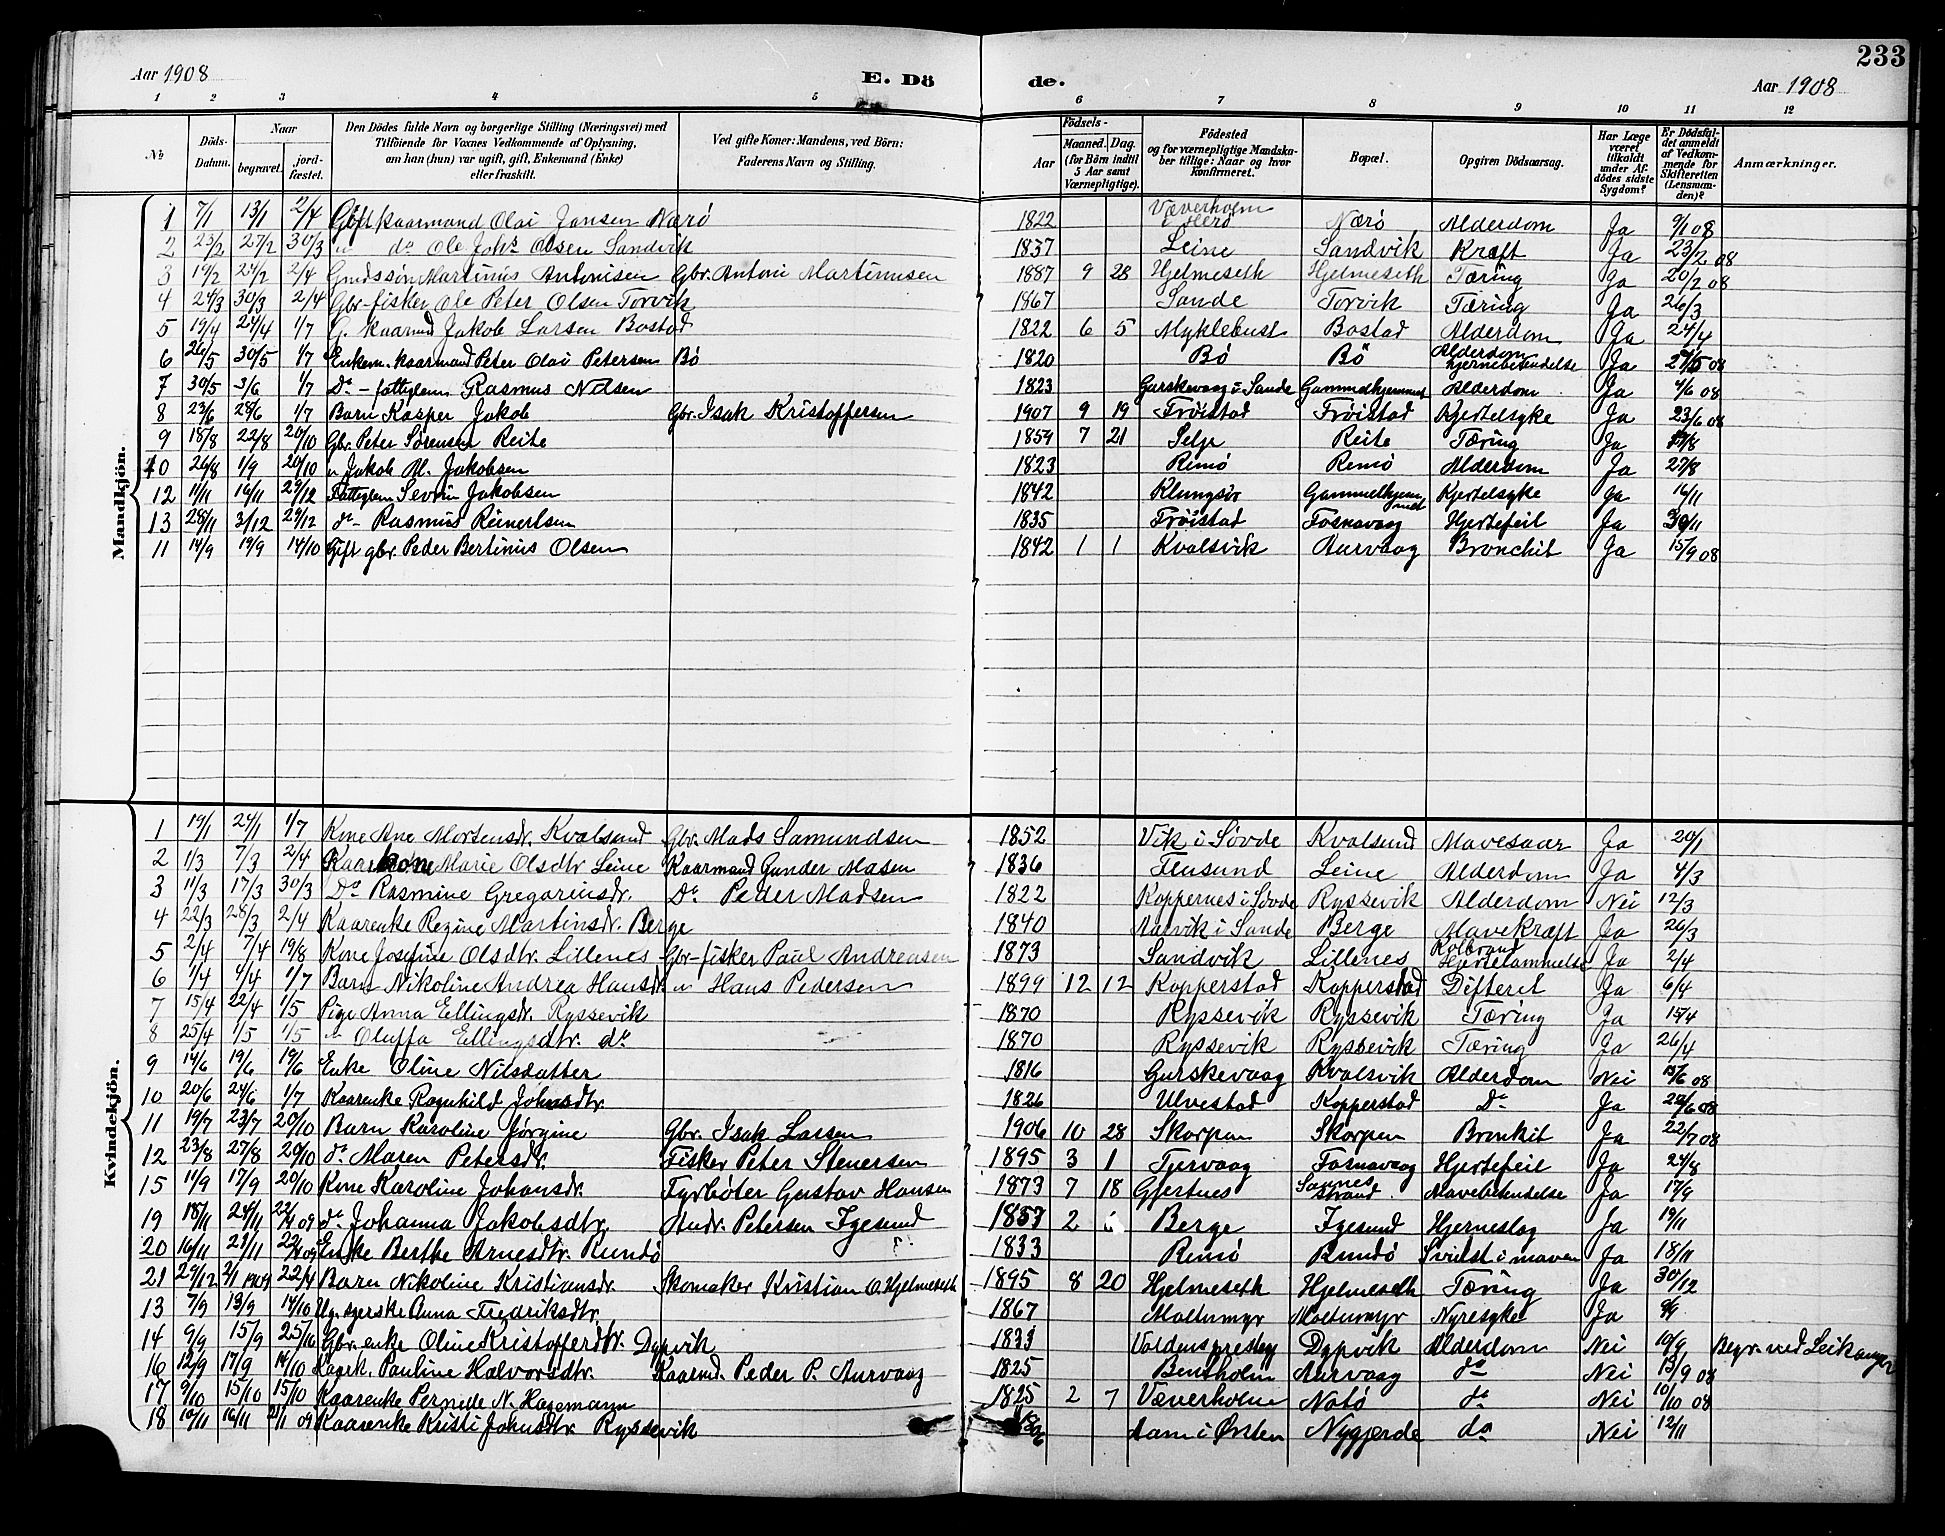 233
Aar 1908 E. Dö de. Aar 1908
1 2 3 4 5 6 7 8 9 10 11 12
№ Döds-Datum. Naar begravet. jord-fæstet. Den Dödes fulde Navn og borgerlige Stilling (Næringsvei) med Tilföiende for Voxnes Vedkommende af Oplysning, om han (hun) var ugift, gift, Enkemand (Enke) eller fraskilt. Ved gifte Koner: Mandens, ved Börn: Faderens Navn og Stilling. Födsels- Aar Maaned. Dag. (for Börn indtil 5 Aar samt Værnepligtige). Födested og for værnepligtige Mandskaber tillige: Naar og hvor konfirmeret. Bopæl. Opgiven Dödsaarsag. Har Læge været tilkaldt under Afdödes sidste Sygdom? Er Dödsfaldet anmeldt af Vedkommende for Skifteretten (Lensmanden)? Anmærkninger.
Mandkjön.
1 7/1 13/1 2/4 Gift kaarmand Olai Jansen Nærö 1822 Væverholm i Herö Nærö Alderdom Ja 9/1 08
2 23/2 27/2 30/3 " do Ole Johs Olsen Sandvik 1837 Leine Sandvik Kræft Ja 23/2 08
3 19/2 24/2 2/4 Gmdssön Martinus Antonisen Gbr. Antoni Martinusen 1887 9 28 Hjelmeseth Hjelmeseth Tæring Ja 20/2 08
4 24/3 30/3 2/4 Gbr-fisker Ole Peter Olsen Torvik 1867 Sande Torvik Tæring Ja 26/3
5 19/4 24/4 1/7 G. kaarmd Jakob Larsen Bostad 1822 6 5 Myklebust Bostad Alderdom Ja 24/4
6 26/5 30/5 1/7 Enkem. kaarmand Peter Olai Petersen Bö 1820 Bö Bö Alderdom hjernebetendelse Ja 27/5 08
7 30/5 3/6 1/7 Do - fattiglem Rasmus Nilsen 1823 Gurskevaag i Sande Gammelhjemmet Alderdom Ja 4/6 08
8 23/6 28/6 1/7 Barn Kasper Jakob Gbr. Isak Kristoffersen 1907 9 19 Fröistad Fröistad Kjertelsyke Ja 23/6 08
9 18/8 22/8 20/10 Gbr. Peter Sörensen Reite 1859 7 21 Selje Reite Tæring Ja
10 26/8 1/9 20/10 " Jakob M. Jakobsen 1823 Remö Remö Alderdom Ja 27/8
12 11/11 16/11 29/12 Fattiglem Sevrin Jakobsen 1842 Klungsör Gammelhjemmet Kjertelsyke Ja 16/11
13 28/11 3/12 29/12 do - Rasmus Reinertsen 1835 Fröistad Fosnavaag Hjertefeil Ja 30/11
11 14/9 19/9 14/10 Gift gbr. Peder Bertinus Olsen 1842 1 1 Kvalsvik Aurvaag Bronchit Ja 15/9 08
Kvindekjön.
1 19/1 24/1 1/7 Kone Ane Mortensdr. Kvalsund Gbr. Mads Samundsen 1852 Vik i Sövde Kvalsund Mavesaar Ja 20/1
2 1/3 7/3 2/4 Kaarkone Marie Olsdtr Leine Kaarmand Gunder Masen 1836 Flusund Leine Alderdom Ja 4/3
3 11/3 17/3 30/3 Do Rasmine Gregariusdr. Do Peder Madsen 1822 Koppernes i Sövde Ryssevik Alderdom Nei 12/3
4 22/3 28/3 2/4 Kaarenke Regine Martinsdr. Berge 1840 Aarvik i Sande Berge Mavekræft Ja 26/3
5 2/4 7/4 19/8 Kone Josefine Olsdtr. Lillenes Gbr-fisker Paul Andreasen 1873 Sandvik Lillenes Kolbrand Hjertelammelse Ja 2/4
6 1/4 4/4 1/7 Barn Nikoline Andrea Hansdr " Hans Pedersen 1899 12 12 Kopperstad Kopperstad Difterit Ja 6/4
7 15/4 22/4 1/5 Pige Anna Ellingsdr. Ryssevik 1870 Ryssevik Ryssevik Tæring Ja 15/4
8 25/4 1/5 1/5 " Oluffa Ellingsdtr. do 1870 Ryssevik Ryssevik Tæring Ja 26/4
9 14/6 19/6 19/6 Enke Oline Nilsdatter 1816 Gurskevaag Kvalsvik Alderdom Nei 15/6 08
10 20/6 24/6 1/7 Kaarenke Ragnhild Johnsdtr. 1826 Ulvestad Kopperstad Do Ja 22/6 08
11 19/7 23/7 20/10 Barn Karoline Jörgine Gbr. Isak Larsen 1906 10 28 Skorpen Skorpen Bronkit Ja 22/7 08
12 23/8 27/8 20/10 do Maren Petersdr. Fisker Peter Stenersen 1895 3 1 Tjervaag Fosnavaag Hjertefeil Ja 24/8
15 11/9 17/9 20/10 Kone Karoline Johansdr. Fyrböter Gustav Hansen 1873 7 18 Gjertnes Sannes strand. Mavebetendelse Ja 17/9
19 18/11 24/11 22/4 09 do Johanna Jakobsdtr. Andr. Petersen Igesund 1857 2 " Berge Igesund Hjerneslag Ja 19/11
20 16/11 21/11 22/4 09 Enke Berthe Arnesdtr. Rundö 1833 Remö Rundö Svulst i maven Ja 18/11
21 29/12 2/1 1909 22/4 Barn Nikoline Kristiansdr. Skomaker Kristian O. Hjelmeseth 1895 8 20 Hjelmeseth Hjelmeseth Tæring Ja 30/12
13 7/9 13/9 14/10 Anna Fredriksdtr. 1867 Moltumyr Moltumyr Nyresyke Ja 9/9
14 9/9 15/9 25/10 Gbr. enke Oline Kristofferdtr. Dypvik 1833 Voldens prestegj Dypvik Alderdom Nei 10/9 Begr. ved Leikanger
16 12/9 17/9 14/10 Kaark. Pauline Halvorsdtr. Kaarmd. Peder P. Aurvaag 1825 Bensholm Aurvaag do Nei 13/9 08
17 9/10 15/10 15/10 Kaarenke Pernede N. Hagemann 1825 2 7 Væverholm Notö do Nei 10/10 08
18 10/11 16/11 21/1 09 Kaarenke Kristi Johnsdtr. Ryssevik Aam i Örsten Nygjerde do Nei 12/11